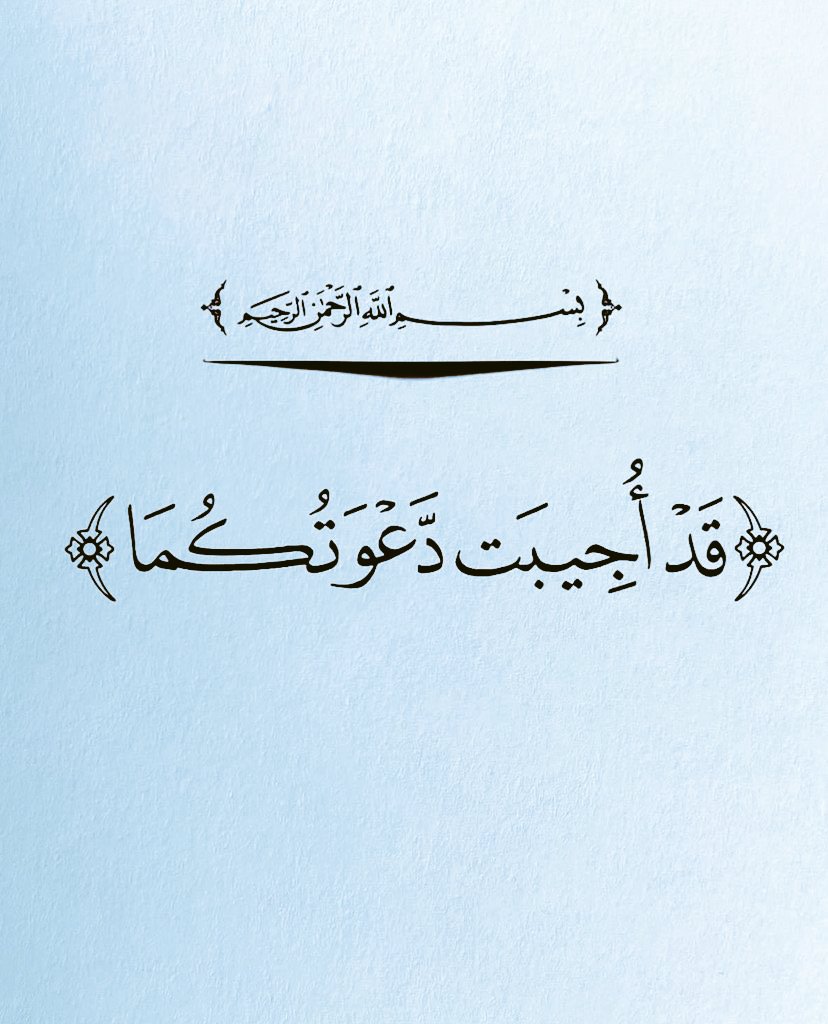 بِسْمِ ٱللَّهِ ٱلرَّحْمَٰنِ ٱلرَّحِيمِ
﴿قَدْ أُجِيبَت دَّعْوَتُكُمَا﴾